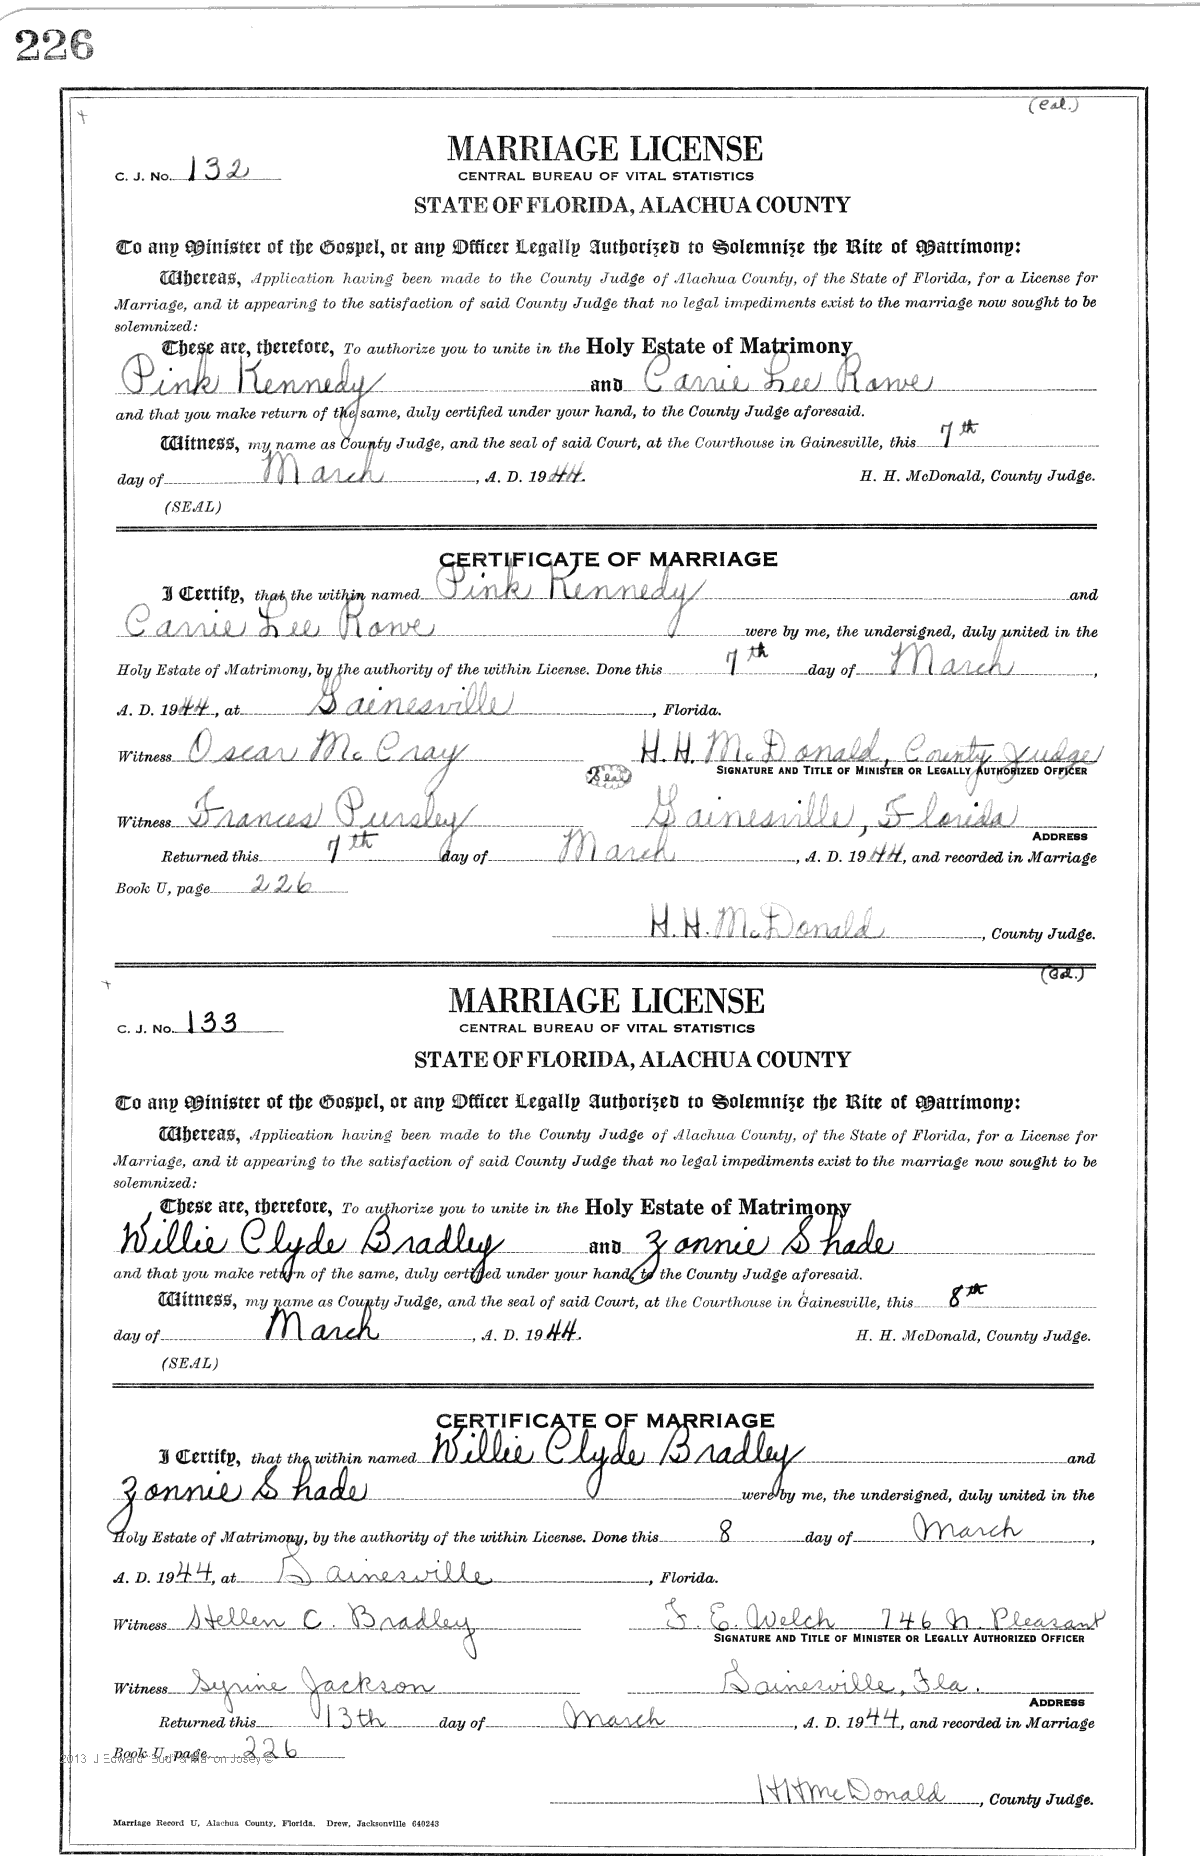 226
(Col.)
MARRIAGE LICENSE
C. J. No. 132
CENTRAL BUREAU OF VITAL STATISTICS
STATE OF FLORIDA, ALACHUA COUNTY
To any Minister of the Gospel, or any Officer Legally Authorized to Solemnize the Rite of Matrimony:
Whereas, Application having been made to the County Judge of Alachua County, of the State of Florida, for a License for
Marriage, and it appearing to the satisfaction of said County Judge that no legal impediments exist to the marriage now sought to be
solemnized:
These are, therefore, To authorize you to unite in the Holy Estate of Matrimony
Pink Kennedy and Carrie Lee Rowe
and that you make return of the same, duly certified under your hand, to the County Judge aforesaid.
Witness, my name as County Judge, and the seal of said Court, at the Courthouse in Gainesville, this 7th
day of March, A. D. 1944. H. H. McDonald, County Judge.
(SEAL)
CERTIFICATE OF MARRIAGE
I Certify, that the within named Pink Kennedy and
Carrie Lee Rowe were by me, the undersigned, duly united in the
Holy Estate of Matrimony, by the authority of the within License. Done this 7th day of March,
A. D. 1944, at Gainesville, Florida.
Witness Oscar McCray H. H. McDonald, County Judge
(Seal) SIGNATURE AND TITLE OF MINISTER OR LEGALLY AUTHORIZED OFFICER
Witness Frances Pursley Gainesville, Florida
ADDRESS
Returned this 7th day of March, A. D. 1944, and recorded in Marriage
Book U, page 226
H. H. McDonald, County Judge.
(Col.)
MARRIAGE LICENSE
C. J. No. 133
CENTRAL BUREAU OF VITAL STATISTICS
STATE OF FLORIDA, ALACHUA COUNTY
To any Minister of the Gospel, or any Officer Legally Authorized to Solemnize the Rite of Matrimony:
Whereas, Application having been made to the County Judge of Alachua County, of the State of Florida, for a License for
Marriage, and it appearing to the satisfaction of said County Judge that no legal impediments exist to the marriage now sought to be
solemnized:
These are, therefore, To authorize you to unite in the Holy Estate of Matrimony
Willie Clyde Bradley and Zonnie Shade
and that you make return of the same, duly certified under your hand, to the County Judge aforesaid.
Witness, my name as County Judge, and the seal of said Court, at the Courthouse in Gainesville, this 8th
day of March, A. D. 1944. H. H. McDonald, County Judge.
(SEAL)
CERTIFICATE OF MARRIAGE
I Certify, that the within named Willie Clyde Bradley and
Zonnie Shade were by me, the undersigned, duly united in the
Holy Estate of Matrimony, by the authority of the within License. Done this 8 day of March,
A. D. 1944, at Gainesville, Florida.
Witness Stellen C. Bradley F. E. Welch 746 N. Pleasant
SIGNATURE AND TITLE OF MINISTER OR LEGALLY AUTHORIZED OFFICER
Witness Syrine Jackson Gainesville, Fla.
ADDRESS
Returned this 13th day of March, A. D. 1944, and recorded in Marriage
Book U, page 226
2013 J Edward
HHMcDonald, County Judge.
Marriage Record U, Alachua County, Florida. Drew, Jacksonville 640243